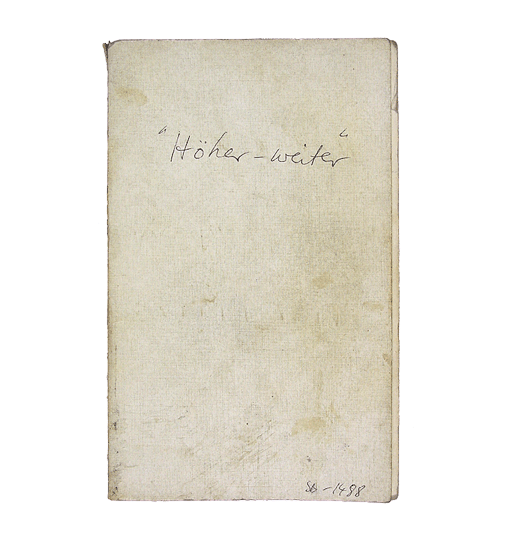 "Höher – weiter"
SB – 1498